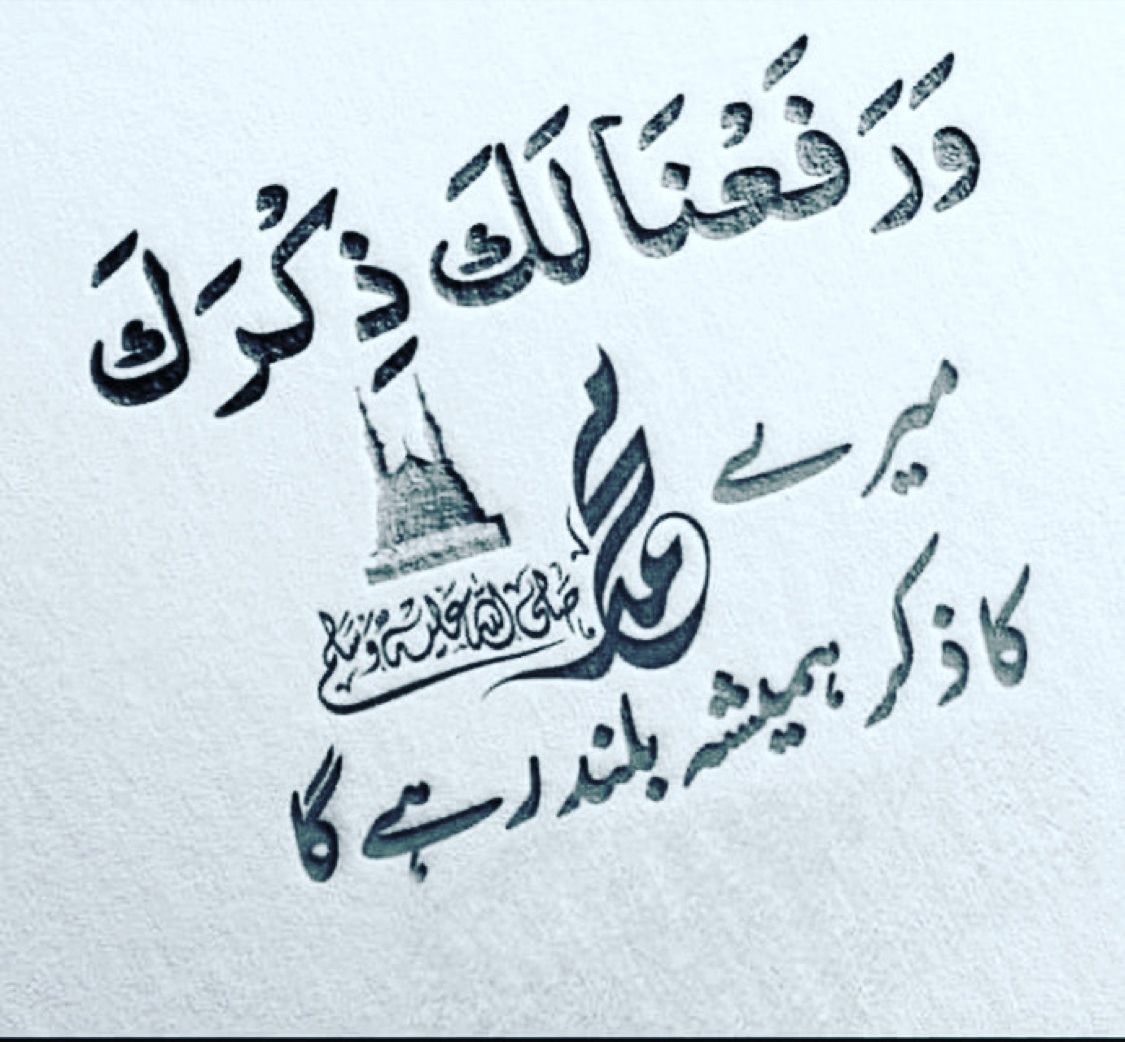 وَرَفَعْنَا لَكَ ذِكْرَكَ
میرے محمد صلى الله عليه وسلم
کا ذکر ہمیشہ بلند رہے گا